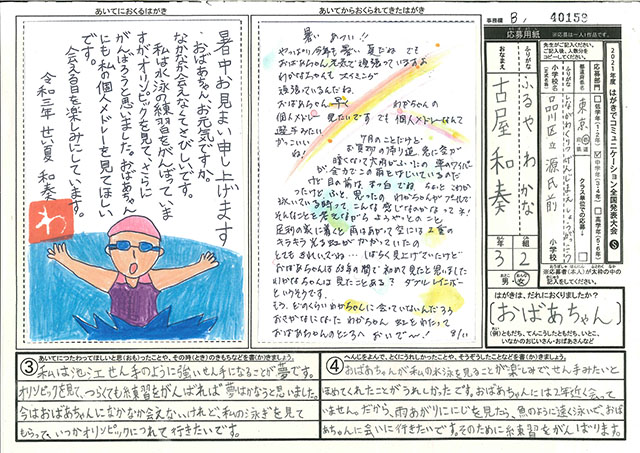 あいてにおくるはがき
暑中お見まい申し上げます
おばあちゃんお元気ですか。
なかなか会えなくてさびしいです。
私は水泳の練習をがんばっていま
すがオリンピックを見て、さらに
がんばろうと思いました。おばあちゃん
にも私の個人メドレーを見てほしい
です。
会える日を楽しみにしています。
令和三年 せい夏 和奏
わ
あいてからおくられてきたはがき
暑い あつい!!
やっぱり今年も暑い 夏だね でも
おばあちゃん 元気で 頑張っていますよ
わかなちゃんも スイミング
頑張っているんだね。
おばあちゃん 早く わかちゃんの
個人メドレー 見たいです でも 個人メドレーなんて
選手みたい
かっこいい
ね!
7月のことだけど
お買物の帰り道 急に空が
暗くなって大雨がふったの 車のワイパー
が 全力でこの雨をはじいているのだ
けど 目の前は、まっ白でね
泳いでいる時って、こんな感じなのかなって ネ!
キラキラ光る虹がかかっていたの
とてもきれいでね… しばらく見上げていたけど
おばあちゃんは68年の間で初めて見たと思いました
わかなちゃんは見たことある? ダブルレインボー
というそうです。
おばあちゃんのところへ おいで〜!
8/11
事務欄 B、 40158
応募用紙
※応募は一人1作品です。
2021年度 はがきでコミュニケーション全国発表大会
応募部門
低学年(1・2年)
中学年(3・4年)
高学年(5・6年)
クラス単位での応募
都道府県
東京
小学校名
品川区立 源氏前 小学校
ふりがな
ふるや わかな
おなまえ
古屋 和奏
3年 2組
男・女
はがきは、だれにおくりましたか?
(おばあちゃん)
(例)ともだち、てんこうしたともだち、いとこ、
いなかのおじいさん・おばあさんなど
③ あいてにつたわってほしいと思(おも)ったことや、その時(とき)のきもちなどを書(か)きましょう。
私は池江せん手のように強いせん手になることが夢です。
オリンピックを見て、つらくても練習をがんばれば夢はかなうと思いました。
今はおばあちゃんになかなか会えないけれど、私の泳ぎを見て
もらって、いつかオリンピックにつれて行きたいです。
④ へんじをよんで、とくにうれしかったことや、そうぞうしたことなどを書(か)きましょう。
おばあちゃんが私の水泳を見ることが楽しみで、せん手みたいと
ほめてくれたことがうれしかったです。おばあちゃんには2年近く会って
いません。だから、雨あがりににじを見たら、魚のように速く泳いで、おば
あちゃんに会いに行きたいです。そのために練習をがんばります。